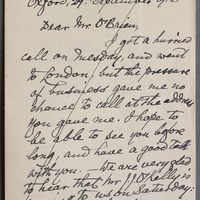 Oxford, 29 September
Dear Mr. O'Brien,
I got a hurried
call on Tuesday, and went
to London, but the pressure
of business gave me no
chance to call at the address
you gave me. I hope to
be able to see you before
long, and have a good talk
with you. We are very glad
to hear that Mr. J. J. O'Kelly is
to us on Saturday: